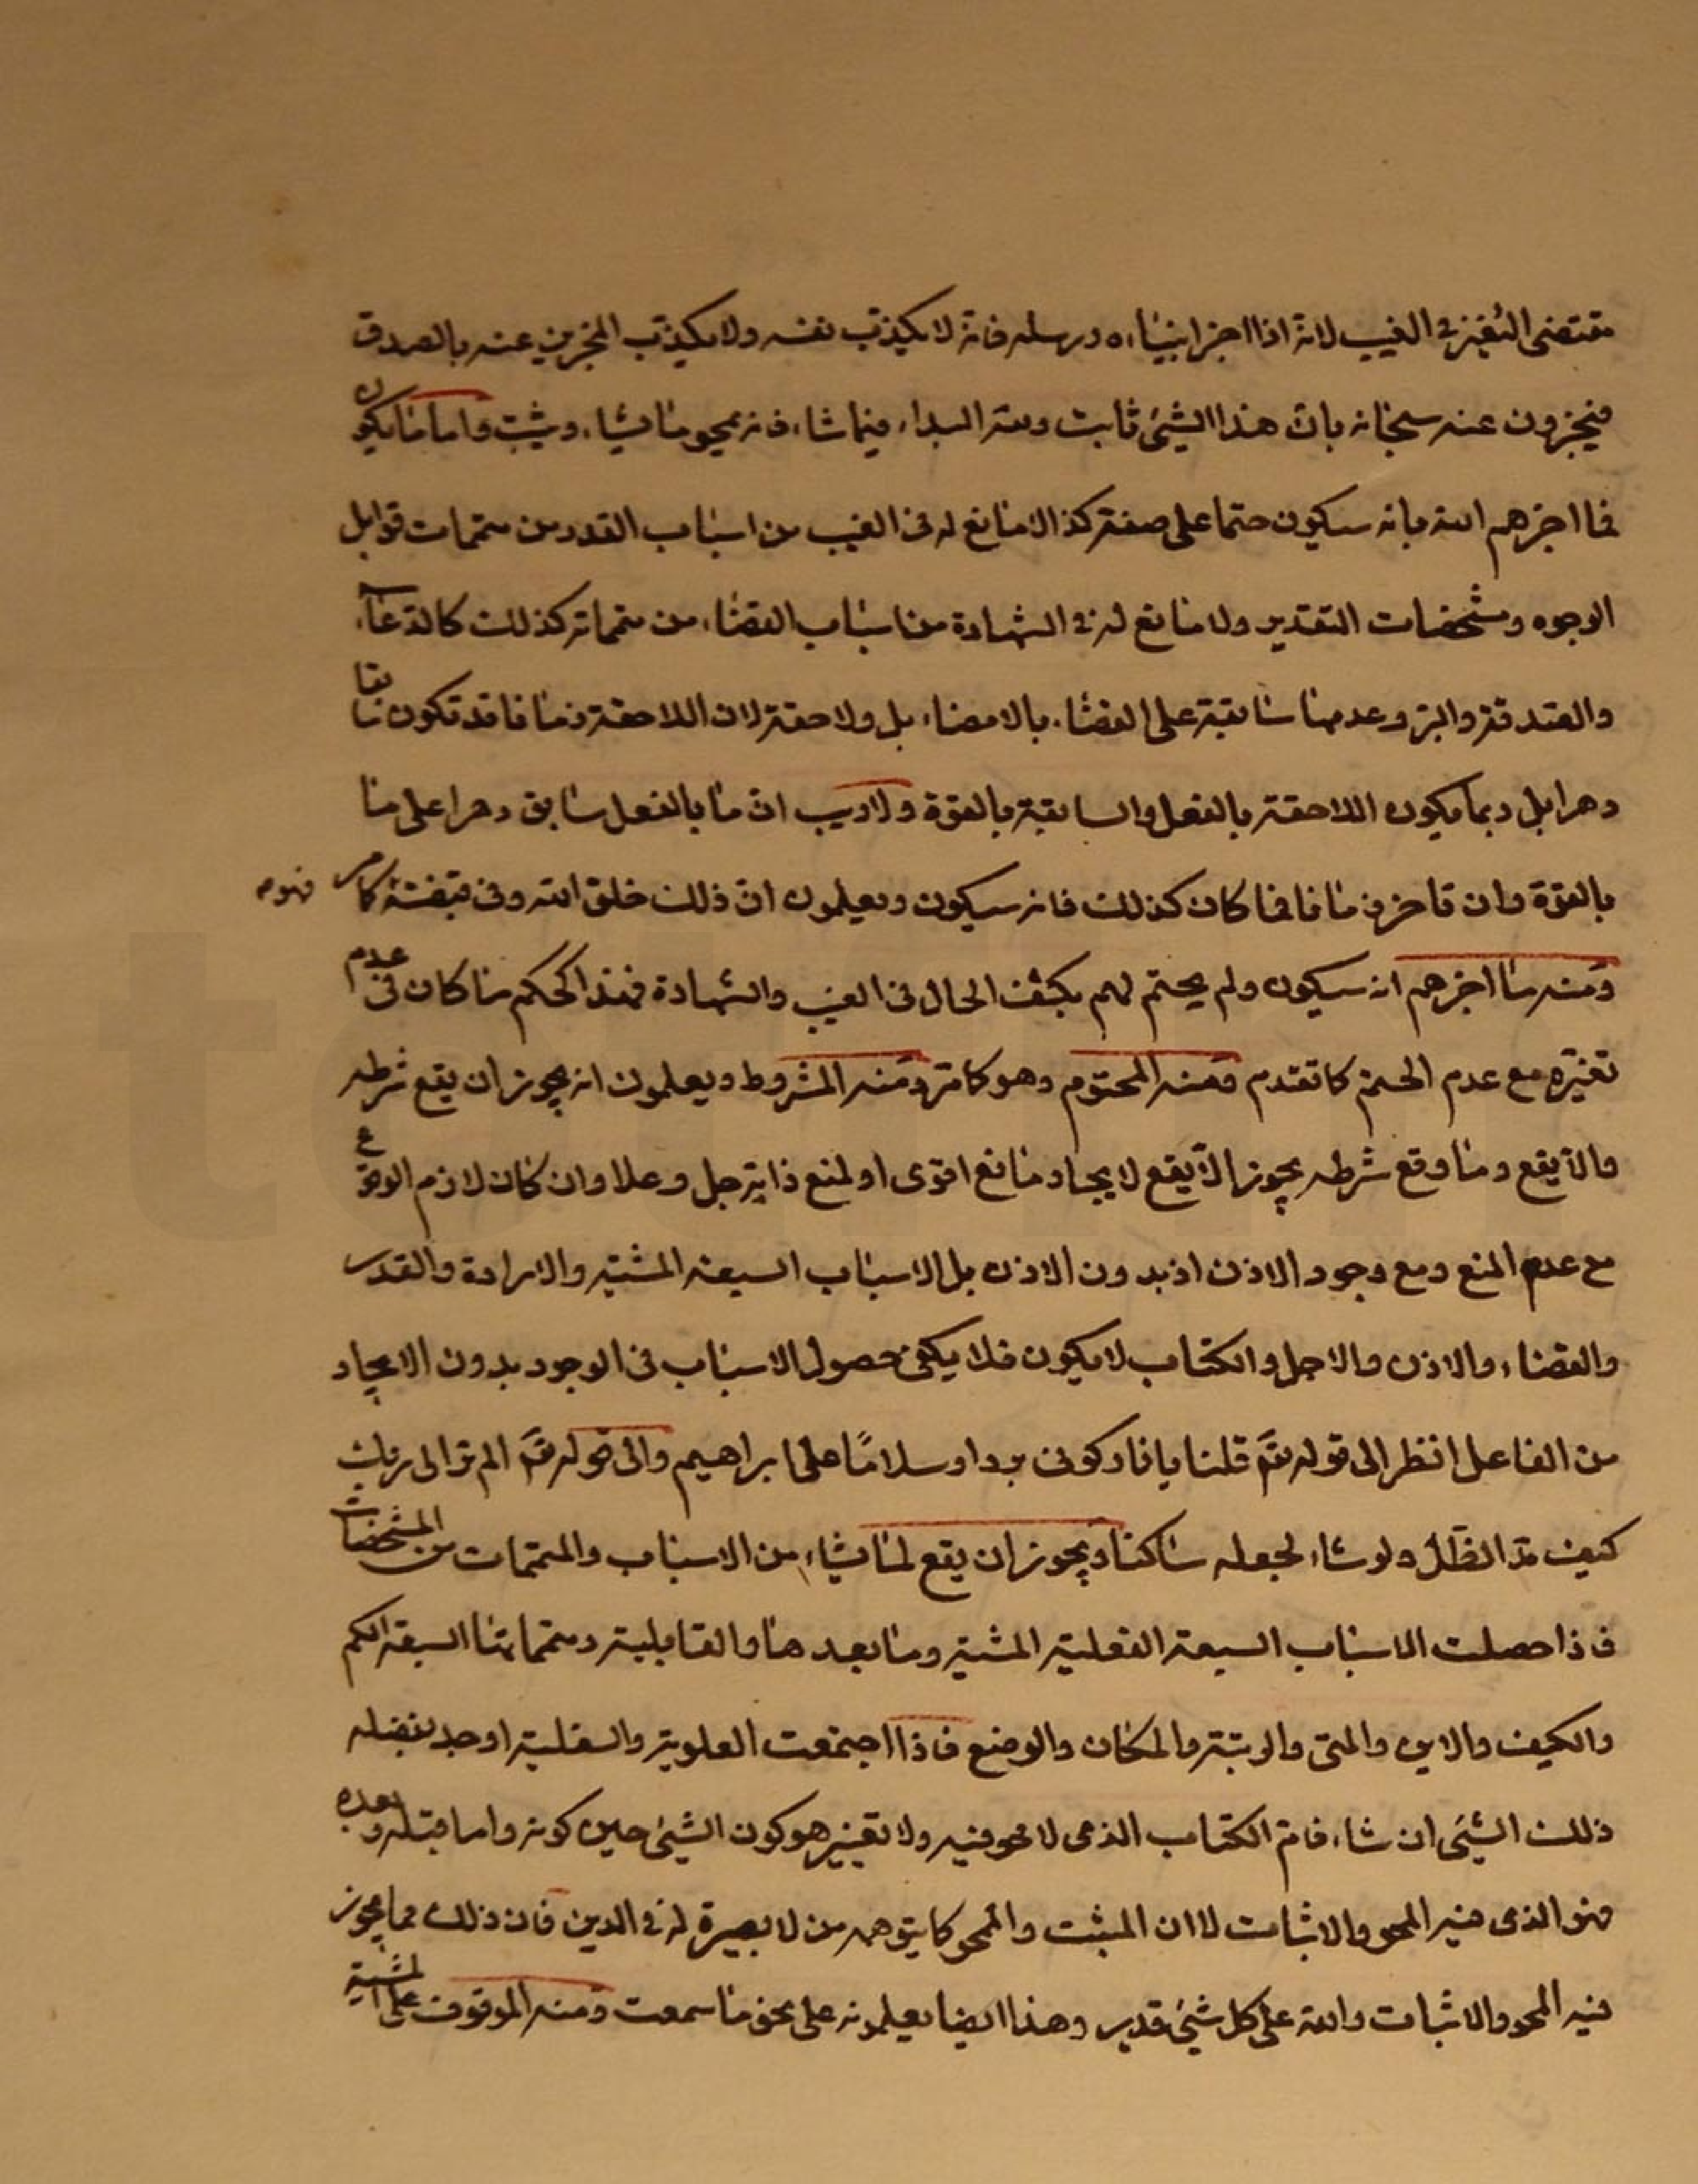 مقتضى التغيّر في الغيب لانه اذا اخبر انبياءه ورسله فانه لا يكذّب نفسه ولا يكذّب المخبرين عنه بالصدق
فيخبرون عنه سبحانه بان هذا الشئ ثابت ولله البداء فيما شاء فانه يمحو ما يشاء ويثبت واما ما يكون
فما اخبرهم الله بانه سيكون حتما على صفة كذا لا مانع له في الغيب من اسباب القدر من متممات قوابل
الوجوه ومشخصات التقدير ولا مانع له في الشهادة من اسباب القضاء من متمماته كذلك كالدعاء
والصدقة والبر وعدمها سابقة على القضاء بالامضاء بل ولاحقة لان اللاحقة زمانا قد تكون سابقا
دهرا بل ربما يكون اللاحقة بالفعل والسابقة بالقوة ولا ريب ان ما بالفعل سابق دهرا على ما
بالقوة وان تاخر زمانا فما كان كذلك فانه سيكون ويعلمون ان ذلك خلق الله وفي قبضته كما مر
ومنه ما اخبرهم انه سيكون ولم يحتم لهم بكشف الحال في الغيب والشهادة فهذا كحكم ما كان في عدم
تغيّره مع عدم الحتم كما تقدم فمنه المحتوم وهو كما مر ومنه المشروط ويعلمون انه يجوز ان يقع شرطه
والّا يقع وما وقع شرطه يجوز الّا يقع لايجاد مانع اقوى او لمنع ذاته جل وعلا وان كان لازم الوقوع
مع عدم المنع ومع وجود الاذن اذ بدون الاذن بل الاسباب السبعة المشية والارادة والقدر
والقضاء والاذن والاجل والكتاب لا يكون فلا يكفي حصول الاسباب في الوجود بدون الايجاد
من الفاعل انظر الى قوله تع قلنا يا نار كوني بردا وسلامًا على ابراهيم والى قوله تع الم تر الى ربك
كيف مدّ الظلّ ولو شاء لجعله ساكنا ويجوز ان يقع لما يشاء من الاسباب والمتممات من المشخصات
فاذا حصلت الاسباب السبعة الفعلية المشية وما بعدها والقابلية ومتمماتها السبعة الكم
والكيف والاين والمتى والرتبة والمكان والوضع فاذا اجتمعت العلوية والسفلية اوجد بفضله
ذلك الشئ ان شاء فام الكتاب الذي لا محو فيه ولا تغيير هو كون الشئ حين كونه واما قبله وبعده
فهو الذي فيه المحو والاثبات لا ان المثبت والمحو كما يتوهمه من لا بصيرة له في الدين فان ذلك مما يجوز
فيه المحو والاثبات والله على كل شئ قدير وهذا ايضا يعلمونه على نحو ما سمعت ومنه الموقوف على المشية